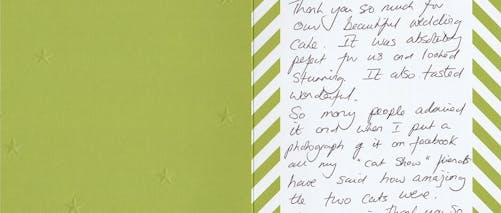 Thank you so much for
our beautiful wedding
cake. It was absolutely
perfect for us and looked
stunning. It also tasted
wonderful.
So many people admired
it and when I put a
photograph of it on facebook
all my "cat show" friends
have said how amazing
the two cats were.
thank you so